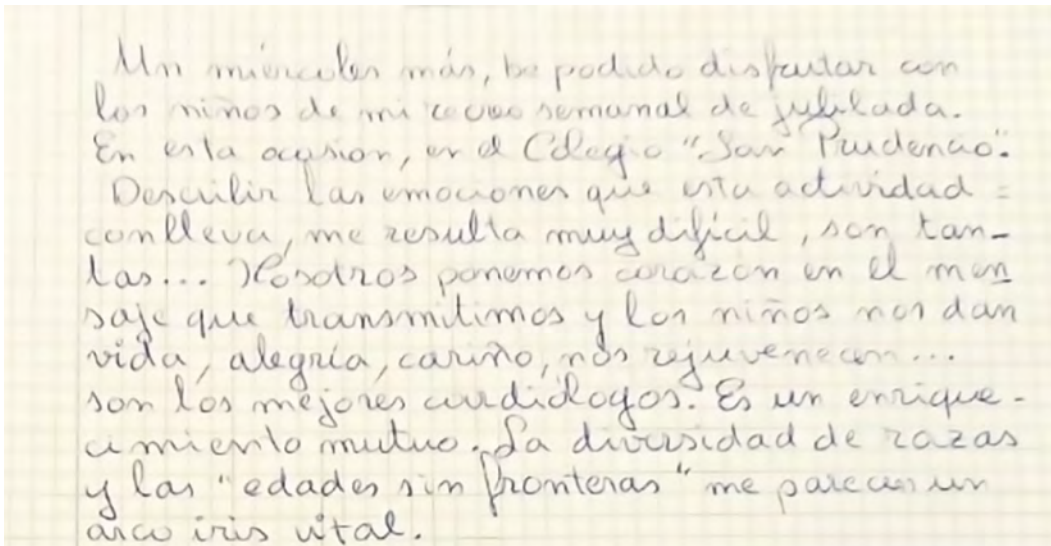 Un miércoles más, he podido disfrutar con
los niños de mi recreo semanal de jubilada.
En esta ocasión, en el Colegio "San Prudencio".
Describir las emociones que esta actividad
conlleva, me resulta muy difícil, son tan-
tas... Nosotros ponemos corazón en el men
saje que transmitimos y los niños nos dan
vida, alegría, cariño, nos rejuvenecen...
son los mejores cardiólogos. Es un enrique-
cimiento mutuo. La diversidad de razas
y las "edades sin fronteras" me parecen un
arco iris vital.